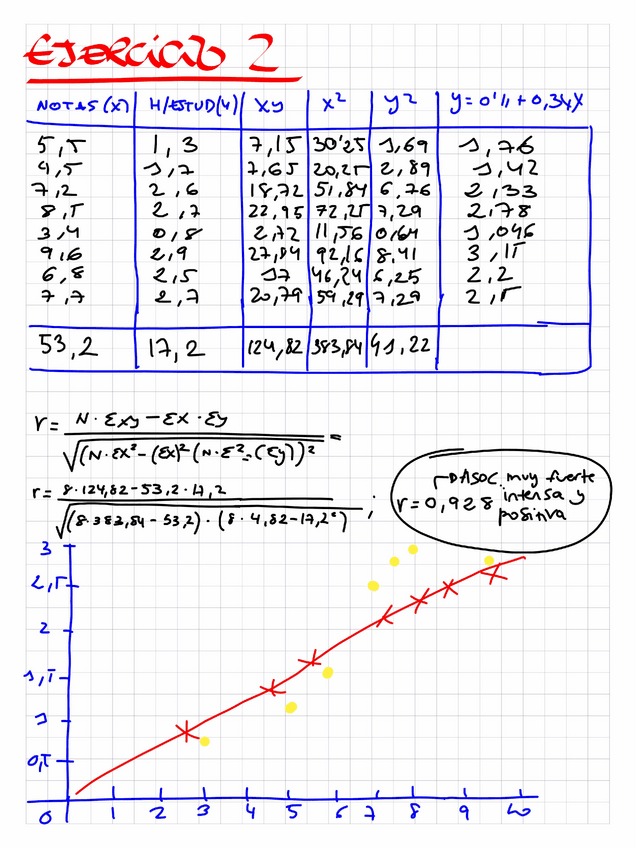 EJERCICIO 2
NOTAS (X) H/ESTUD(Y) XY X² Y² Y=0'11+0,34X
5,5 1,3 7,15 30'25 1,69 1,76
4,5 1,7 7,65 20,25 2,89 1,42
7,2 2,6 18,72 51,84 6,76 2,33
8,5 2,7 22,95 72,25 7,29 2,78
3,4 0,8 2,72 11,56 0,64 1,046
9,6 2,9 27,84 92,16 8,41 3,15
6,8 2,5 17 46,24 6,25 2,2
7,7 2,7 20,79 59,29 7,29 2,5
53,2 17,2 124,82 383,84 41,22
r = N·Σxy - Σx·Σy
√(N·Σx²-(Σx)²(N·Σ²-(Σy))² =
r = 8·124,82-53,2·17,2
√(8·383,84-53,2)·(8·4,82-17,2²) ;
ASOC. muy fuerte
intensa y
positiva
r=0,928
3
2,5
2
1,5
1
0,5
0 1 2 3 4 5 6 7 8 9 10